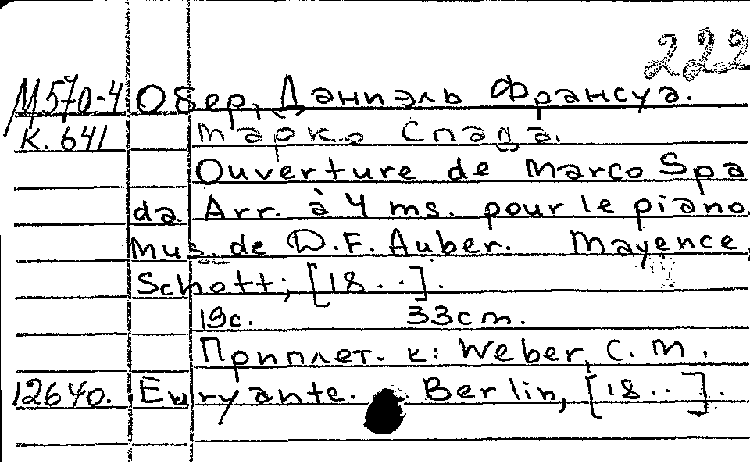 222
М570-4 Обер, Даниэль Франсуа.
К. 641 Марко Спада.
Ouverture de Marco Spa
da Arr. à 4 ms. pour le piano
Mus. de D. F. Auber. Mayence,
Schott, [18..].
19с. 33cm.
Приплет. к: Weber, C. M.
12640. Euryante. Berlin, [18..].